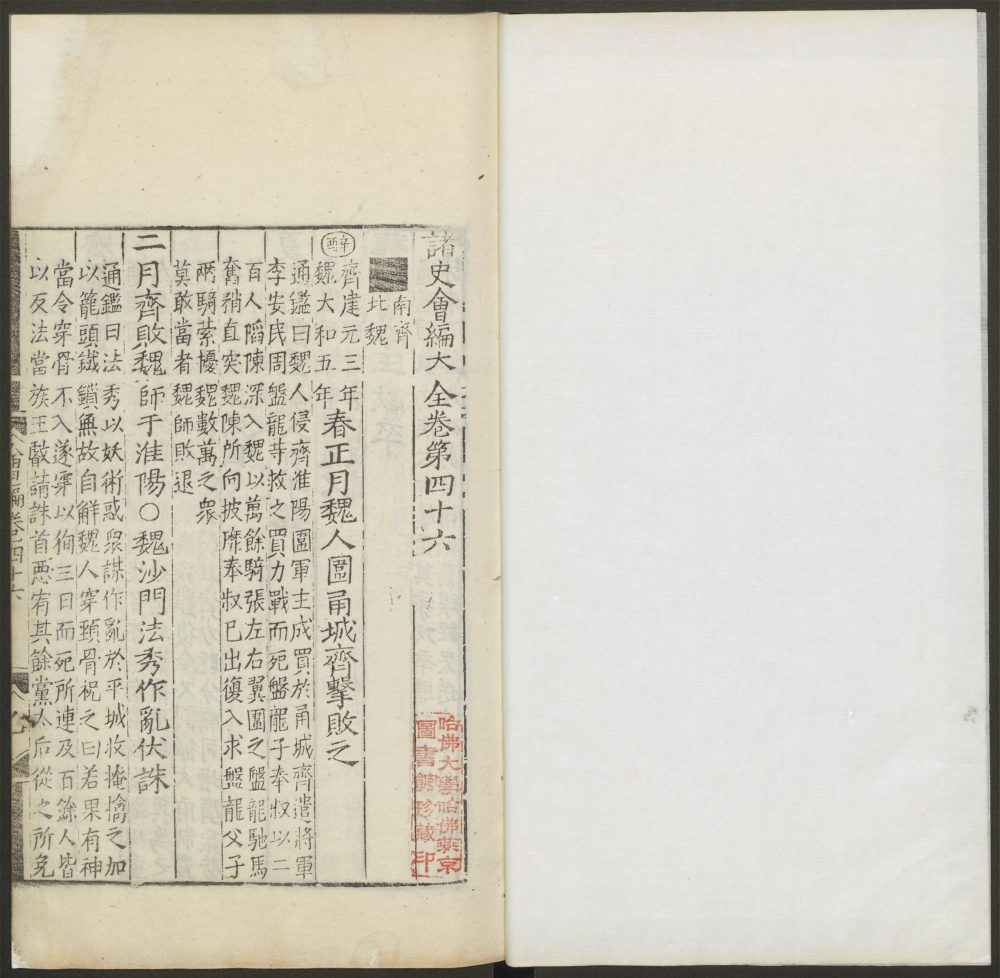 諸史會編大全卷第四十六
南齊
北魏
辛酉
齊建元三年
魏大和五年
春正月魏人圍甬城齊擊敗之
通鑑曰魏人侵齊淮陽圍軍主成買於甬城齊遣將軍
李安民周盤龍等救之買力戰而死盤龍子奉叔以二
百人䧟陳深入魏以萬餘騎張左右翼圍之盤龍馳馬
奮矟直突魏陳所向披靡奉叔已出復入求盤龍父子
兩騎縈擾魏數萬之衆
莫敢當者魏師敗退
二月齊敗魏師于淮陽○魏沙門法秀作亂伏誅
通鑑曰法秀以妖術惑衆謀作亂於平城收掩擒之加
以籠頭鐵鎖無故自解魏人穿頸骨祝之曰若果有神
當令穿骨不入遂穿以狥三日而死所連及百餘人皆
以反法當族王叡請誅首惡宥其餘黨太后從之所免
會編卷四十六
哈佛大學哈佛燕京
圖書館珍藏印